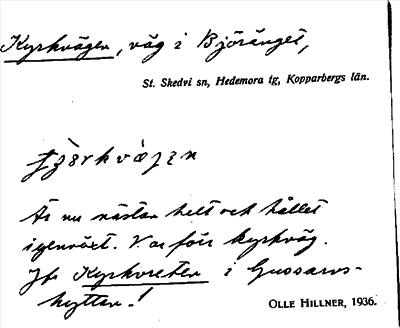 Kyrkvägen, väg i Björänget,
St. Skedvi sn, Hedemora tg, Kopparbergs län.
Är nu nästan helt och hållet
igenväxt. Var förr kyrkväg.
Jfr Kyrkvreten i Gussarvs-
hyttan!
OLLE HILLNER, 1936.